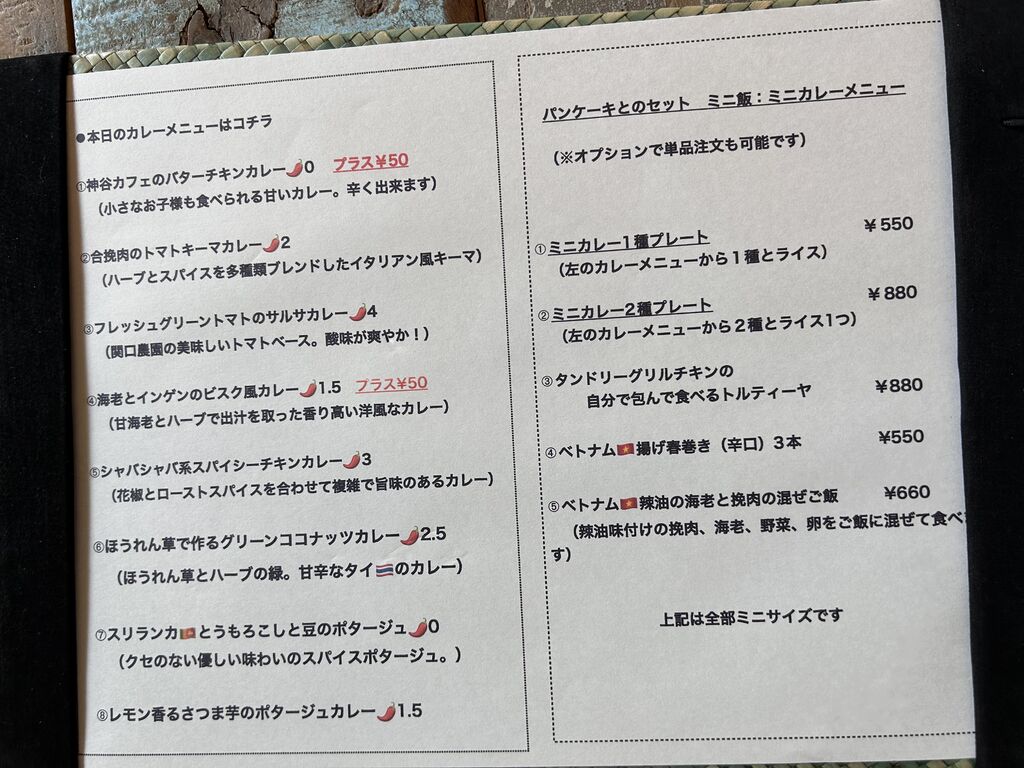 ●本日のカレーメニューはコチラ
①神谷カフェのバターチキンカレー🌶0 プラス¥50
(小さなお子様も食べられる甘いカレー。辛く出来ます)
②合挽肉のトマトキーマカレー🌶2
(ハーブとスパイスを多種類ブレンドしたイタリアン風キーマ)
③フレッシュグリーントマトのサルサカレー🌶4
(関口農園の美味しいトマトベース。酸味が爽やか!)
④海老とインゲンのビスク風カレー🌶1.5 プラス¥50
(甘海老とハーブで出汁を取った香り高い洋風なカレー)
⑤シャバシャバ系スパイシーチキンカレー🌶3
(花椒とローストスパイスを合わせて複雑で旨味のあるカレー)
⑥ほうれん草で作るグリーンココナッツカレー🌶2.5
(ほうれん草とハーブの緑。甘辛なタイ🇹🇭のカレー)
⑦スリランカ🇱🇰とうもろこしと豆のポタージュ🌶0
(クセのない優しい味わいのスパイスポタージュ。)
⑧レモン香るさつま芋のポタージュカレー🌶1.5
パンケーキとのセット ミニ飯:ミニカレーメニュー
(※オプションで単品注文も可能です)
①ミニカレー1種プレート ¥550
(左のカレーメニューから1種とライス)
②ミニカレー2種プレート ¥880
(左のカレーメニューから2種とライス1つ)
③タンドリーグリルチキンの
自分で包んで食べるトルティーヤ ¥880
④ベトナム🇻🇳揚げ春巻き(辛口)3本 ¥550
⑤ベトナム🇻🇳辣油の海老と挽肉の混ぜご飯 ¥660
(辣油味付けの挽肉、海老、野菜、卵をご飯に混ぜて食べ
す)
上記は全部ミニサイズです